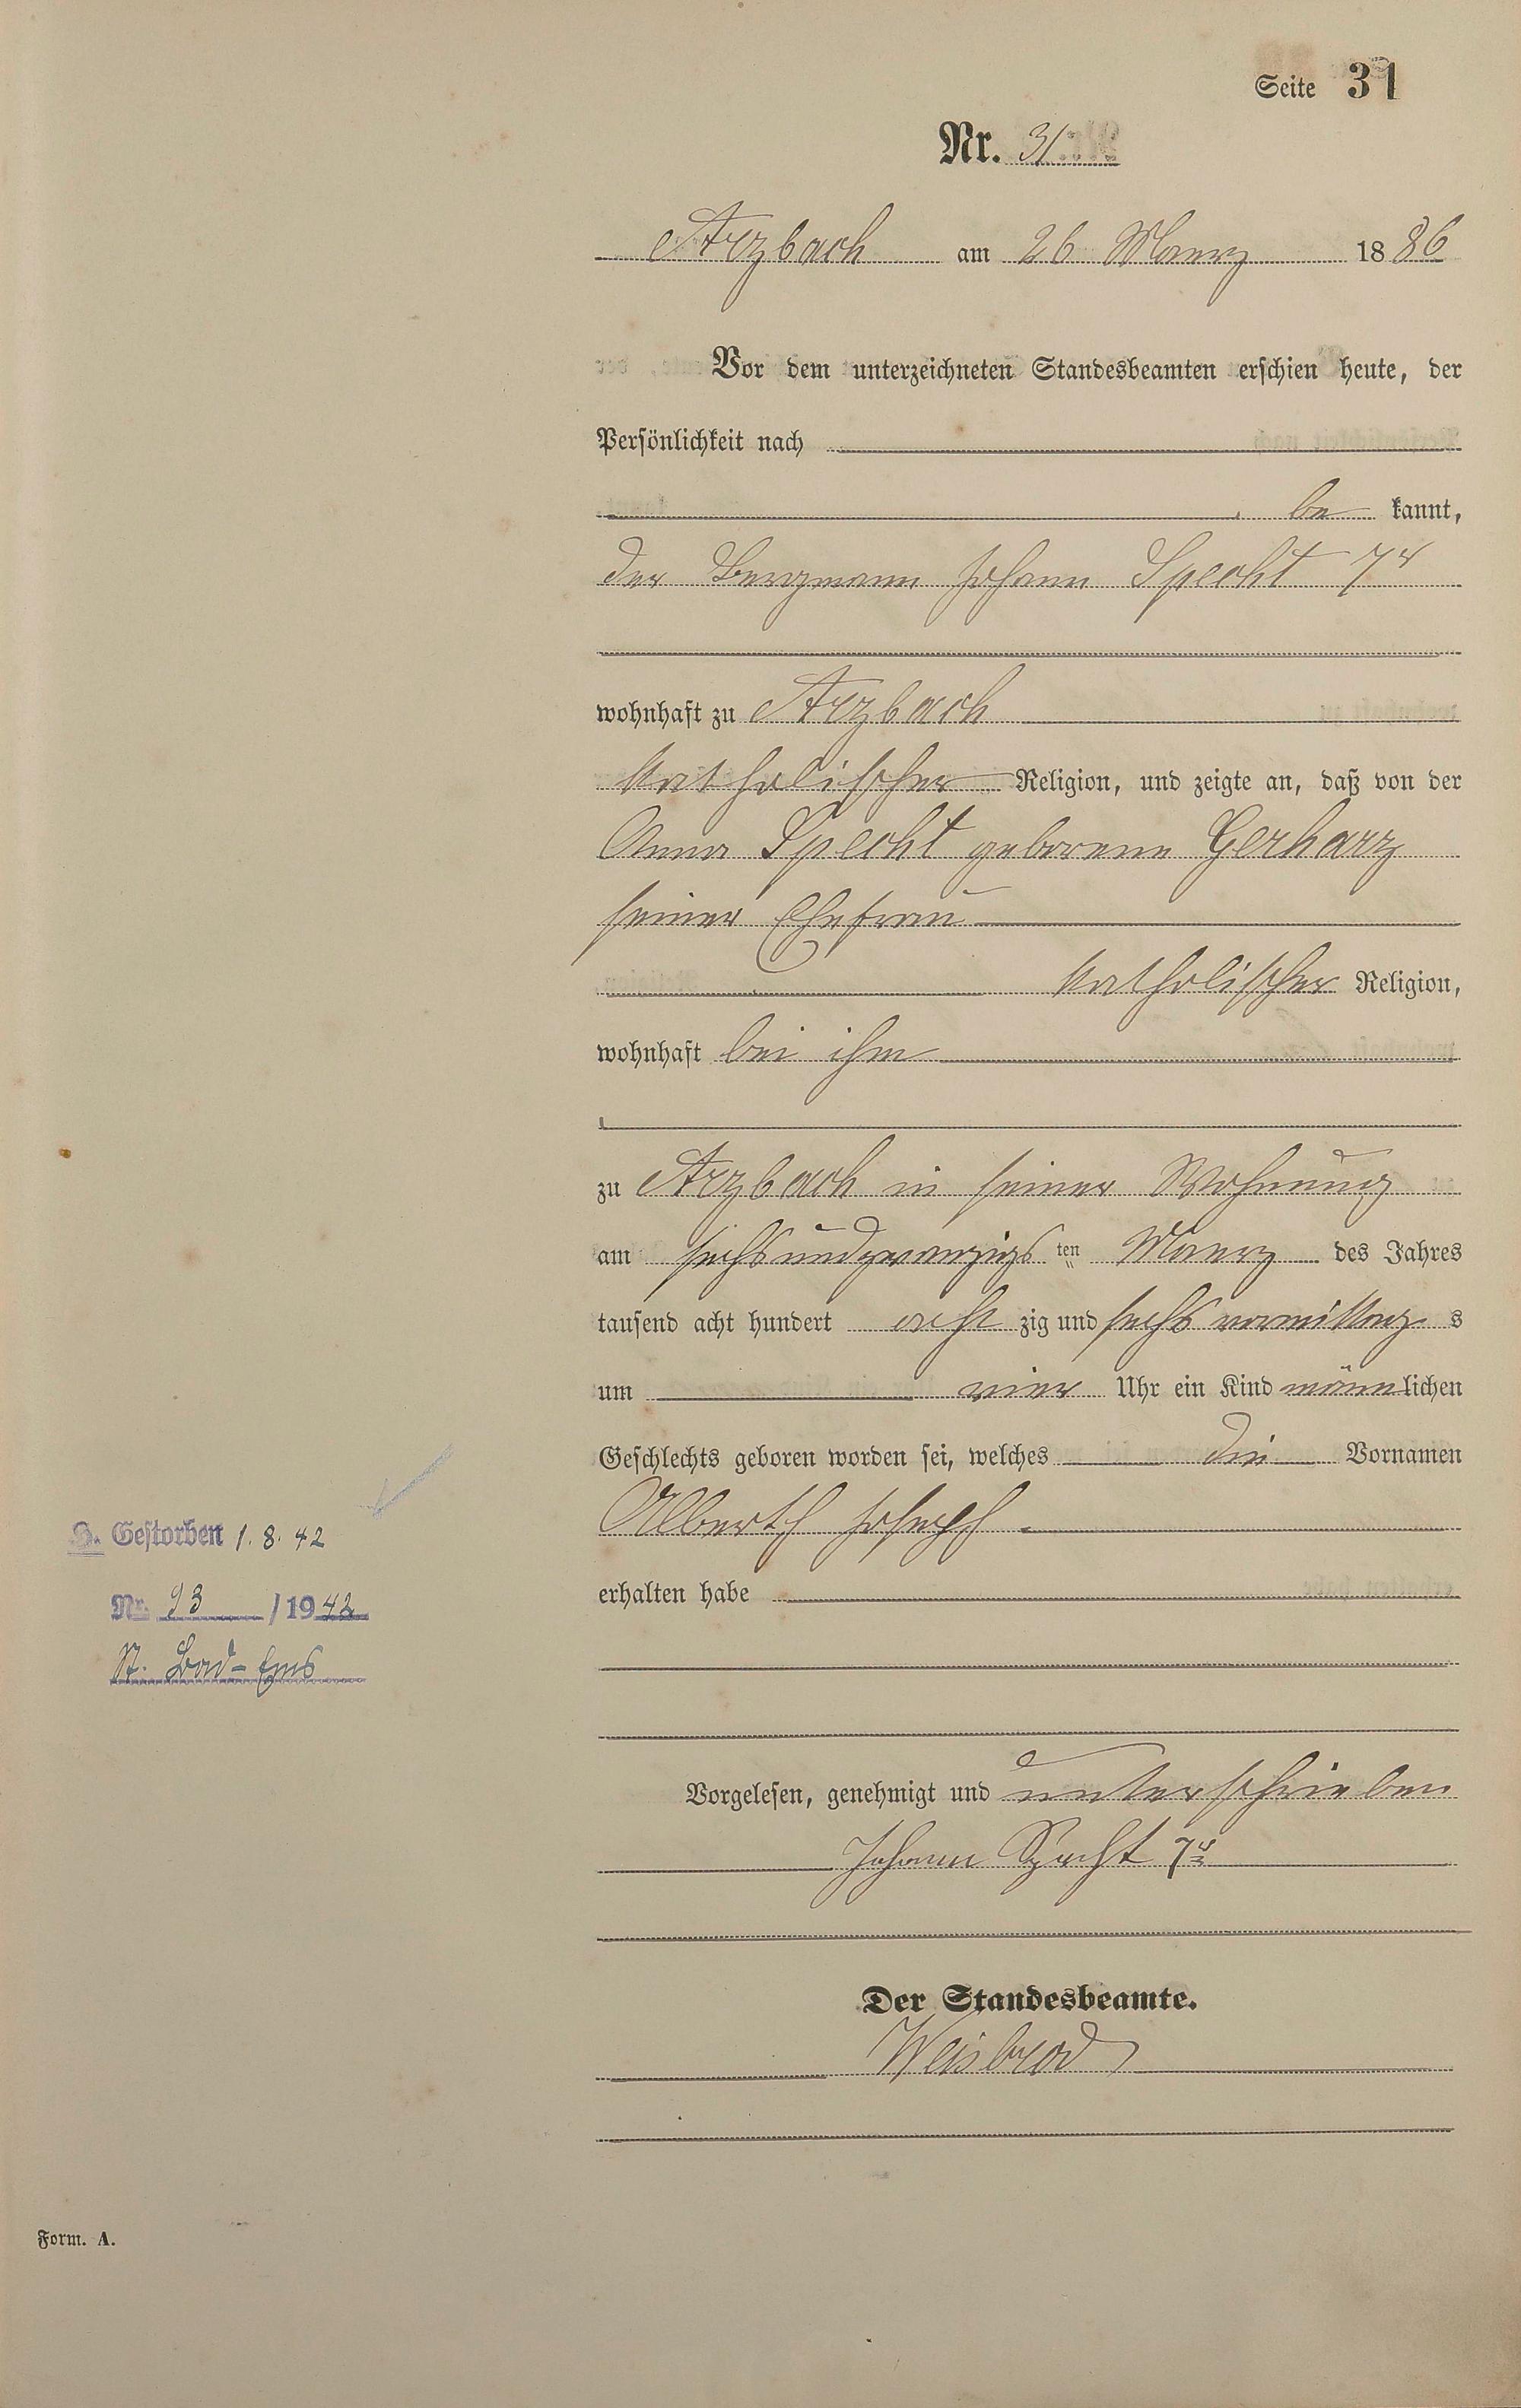 Seite 31
Nr. 31
Arzbach am 26 Maerz 1886
Vor dem unterzeichneten Standesbeamten erschien heute, der
Persönlichkeit nach
be kannt,
der Bergmann Johann Specht 7r
wohnhaft zu Arzbach
katholischer Religion, und zeigte an, daß von der
Anna Specht geborene Gerharz
seiner Ehefrau
katholischer Religion,
wohnhaft bei ihm
zu Arzbach in seiner Wohnung
am sechsundzwanzigsten Maerz des Jahres
tausend acht hundert acht zig und sechs vormittags
um vier Uhr ein Kind männlichen
Geschlechts geboren worden sei, welches die Vornamen
Alberth Joseph
erhalten habe
Vorgelesen, genehmigt und unterschrieben
Johann Specht 7r
Der Standesbeamte.
Weisbrod
Gestorben 1. 8. 42
Nr. 93 / 1942
St. Bad-Ems
Form. A.